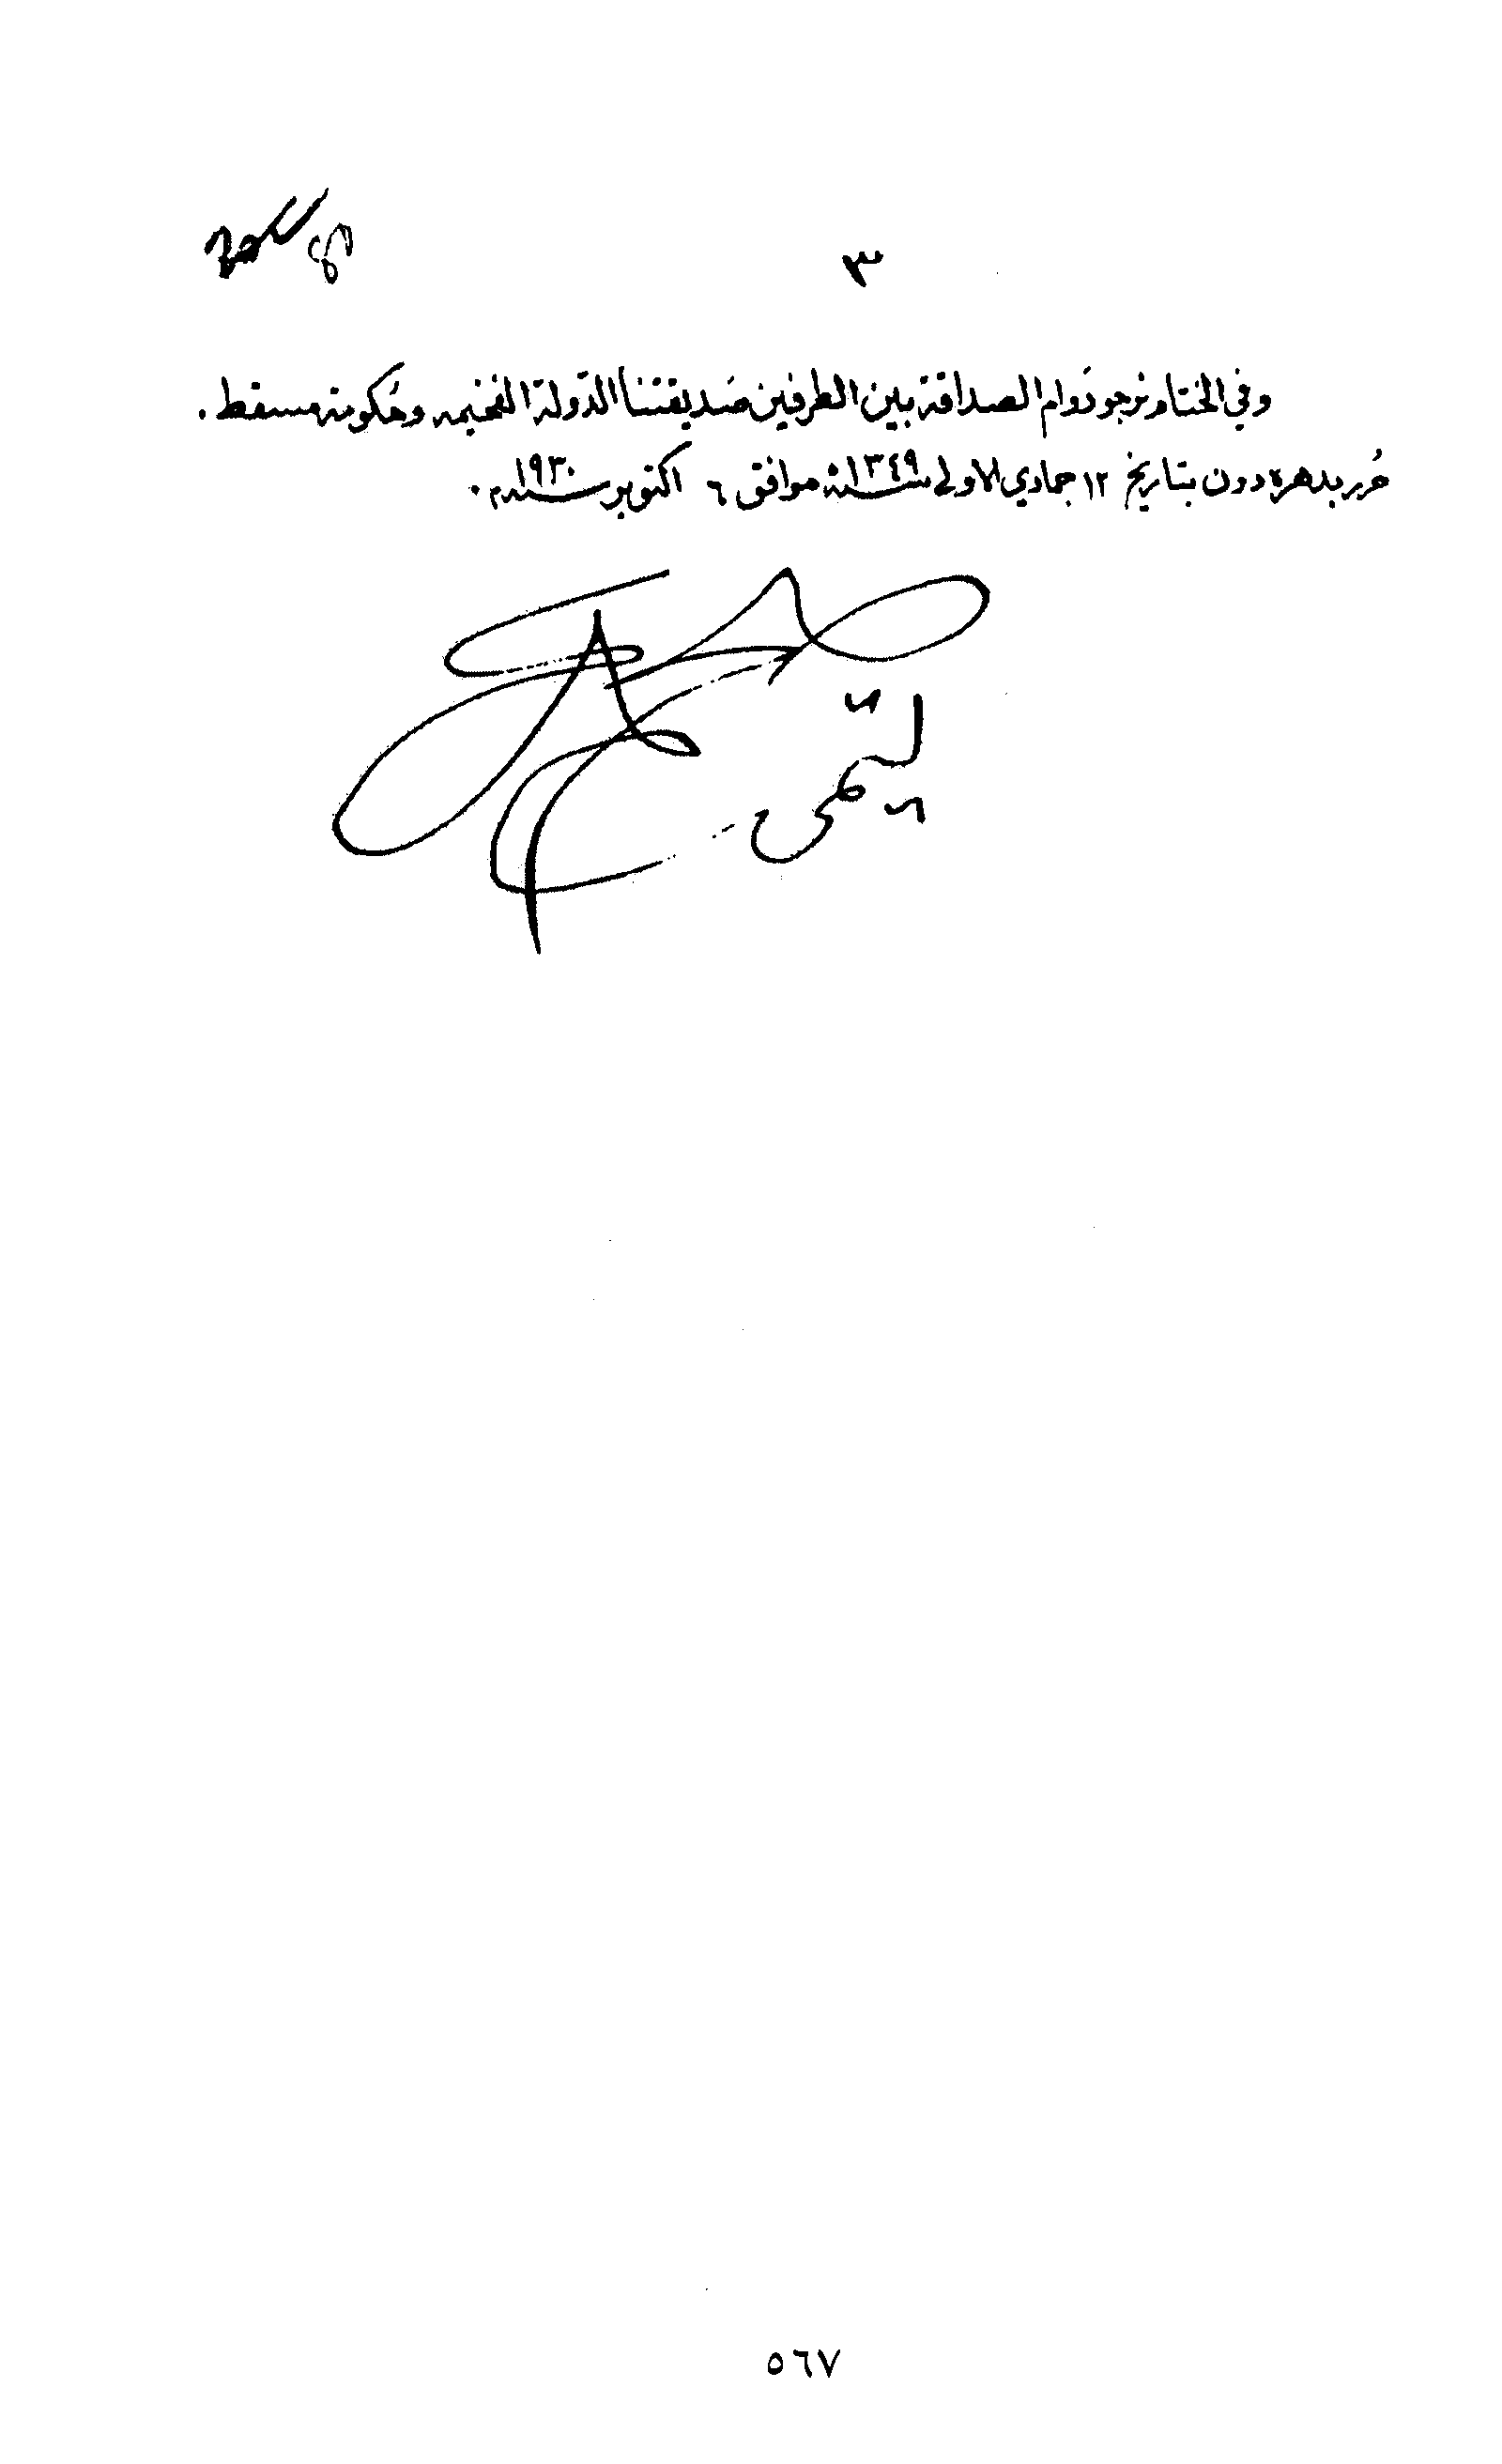 ٣
وفي الختام نرجو دَوام الصداقة بين الطرفين صَديقتنا الدّولة الفخيمه وحُكومة مسقط .
حُرر بدهره دون بتاريخ ١٢ جمادي الاولى سنة ١٣٤٩ه موافق ٦ اكتوبر سنه ١٩٣٠م .
٥٦٧